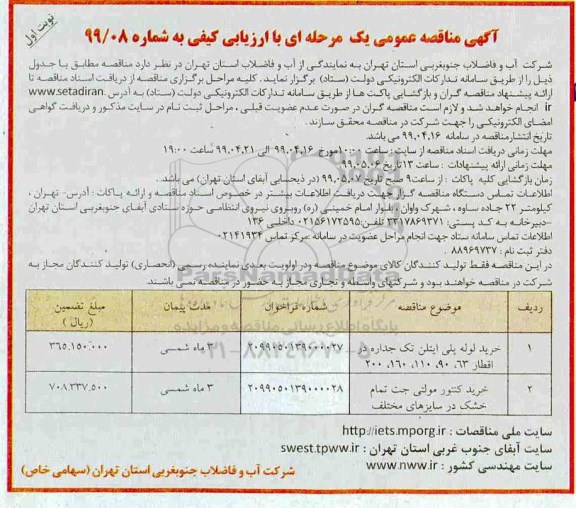 نوبت اول
آگهی مناقصه عمومی یک مرحله ای با ارزیابی کیفی به شماره ۹۹/۰۸
شرکت آب و فاضلاب جنوبغربی استان تهران به نمایندگی از آب و فاضلاب استان تهران در نظر دارد مناقصه مطابق با جدول
ذیل را از طریق سامانه تدارکات الکترونیکی دولت (ستاد) برگزار نماید. کلیه مراحل برگزاری مناقصه از دریافت اسناد مناقصه تا
ارائه پیشنهاد مناقصه گران و بازگشایی پاکت ها از طریق سامانه تدارکات الکترونیکی دولت (ستاد) به آدرس www.setadiran.
ir انجام خواهد شد و لازم است مناقصه گران در صورت عدم عضویت قبلی ، مراحل ثبت نام در سایت مذکور و دریافت گواهی
امضای الکترونیکی را جهت شرکت در مناقصه محقق سازند.
تاریخ انتشار مناقصه در سامانه ۹۹.۰۴.۱۶ می باشد.
مهلت زمانی دریافت اسناد مناقصه از سایت: ساعت ۱۰:۰۰ مورخ ۹۹.۰۴.۱۶ الی ۹۹.۰۴.۲۱ ساعت ۱۹:۰۰
مهلت زمانی ارائه پیشنهادات : ساعت ۱۳ تاریخ ۹۹.۰۵.۰۶
زمان بازگشایی کلیه پاکات : از ساعت ۹ صبح تاریخ ۹۹.۰۵.۰۷ (در ذیحسابی آبفای استان تهران) می باشد.
اطلاعات تماس دستگاه مناقصه گزار جهت دریافت اطلاعات بیشتر در خصوص اسناد مناقصه و ارائه پاکات : آدرس- تهران ،
کیلومتر ۲۲ جاده ساوه ، شهرک واوان - بلوار امام خمینی (ره) روبروی نیروی انتظامی حوزه ستادی آبفای جنوبغربی استان تهران
-دبیرخانه به کد پستی: ۳۳۱۷۸۶۹۳۷۱ تلفن:۰۲۱۵۶۱۷۲۵۹۵ داخلی ۱۳۶
اطلاعات تماس سامانه ستاد جهت انجام مراحل عضویت در سامانه مرکز تماس ۰۲۱۴۱۹۳۴
دفتر ثبت نام : ۸۸۹۶۹۷۳۷
در این مناقصه فقط تولید کنندگان کالای موضوع مناقصه ودر اولویت بعدی نماینده رسمی (انحصاری) تولید کنندگان مجاز به
شرکت در مناقصه خواهند بود و شرکتهای واسطه و تجاری مجاز به حضور در مناقصه نمی باشند.
ردیف موضوع مناقصه شماره فراخوان مدت پیمان مبلغ تضمین (ریال)
۱ خرید لوله پلی اتیلن تک جداره در اقطار ۶۳، ۹۰، ۱۱۰، ۱۶۰، ۲۰۰ ۲۰۹۹۰۵۰۱۳۹۰۰۰۰۲۷ ۳ ماه شمسی ۳۶۵.۱۵۰.۰۰۰
۲ خرید کنتور مولتی جت تمام خشک در سایزهای مختلف ۲۰۹۹۰۵۰۱۳۹۰۰۰۰۲۸ ۳ ماه شمسی ۷۰۸.۳۳۷.۵۰۰
سایت ملی مناقصات : http://iets.mporg.ir
سایت آبفای جنوب غربی استان تهران : swest.tpww.ir
سایت مهندسی کشور : www.nww.ir
شرکت آب و فاضلاب جنوبغربی استان تهران (سهامی خاص)
ParsNamadData
پایگاه اطلاع رسانی مناقصه و مزایده